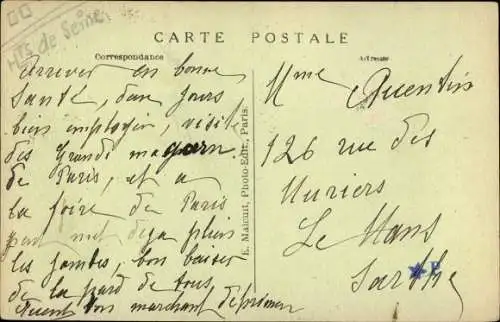 Hts de Seine
CARTE POSTALE
Correspondance
Adresse
Arriver en bonne
santé, deux jours
bien employer, visite
des Grands magasin
de Paris, et a
la foire de Paris
les jambes, bon baiser
de la pard de tous
marchant
E. Malcuit, Photo-Edit., Paris.
Mme Quentin
126 rue des
Muriers
Le Mans
Sarthe